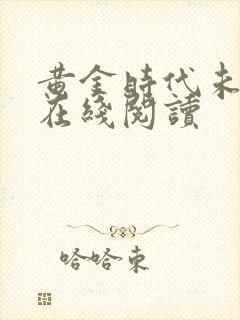 黄金時代未
在綫閱讀
哈哈東